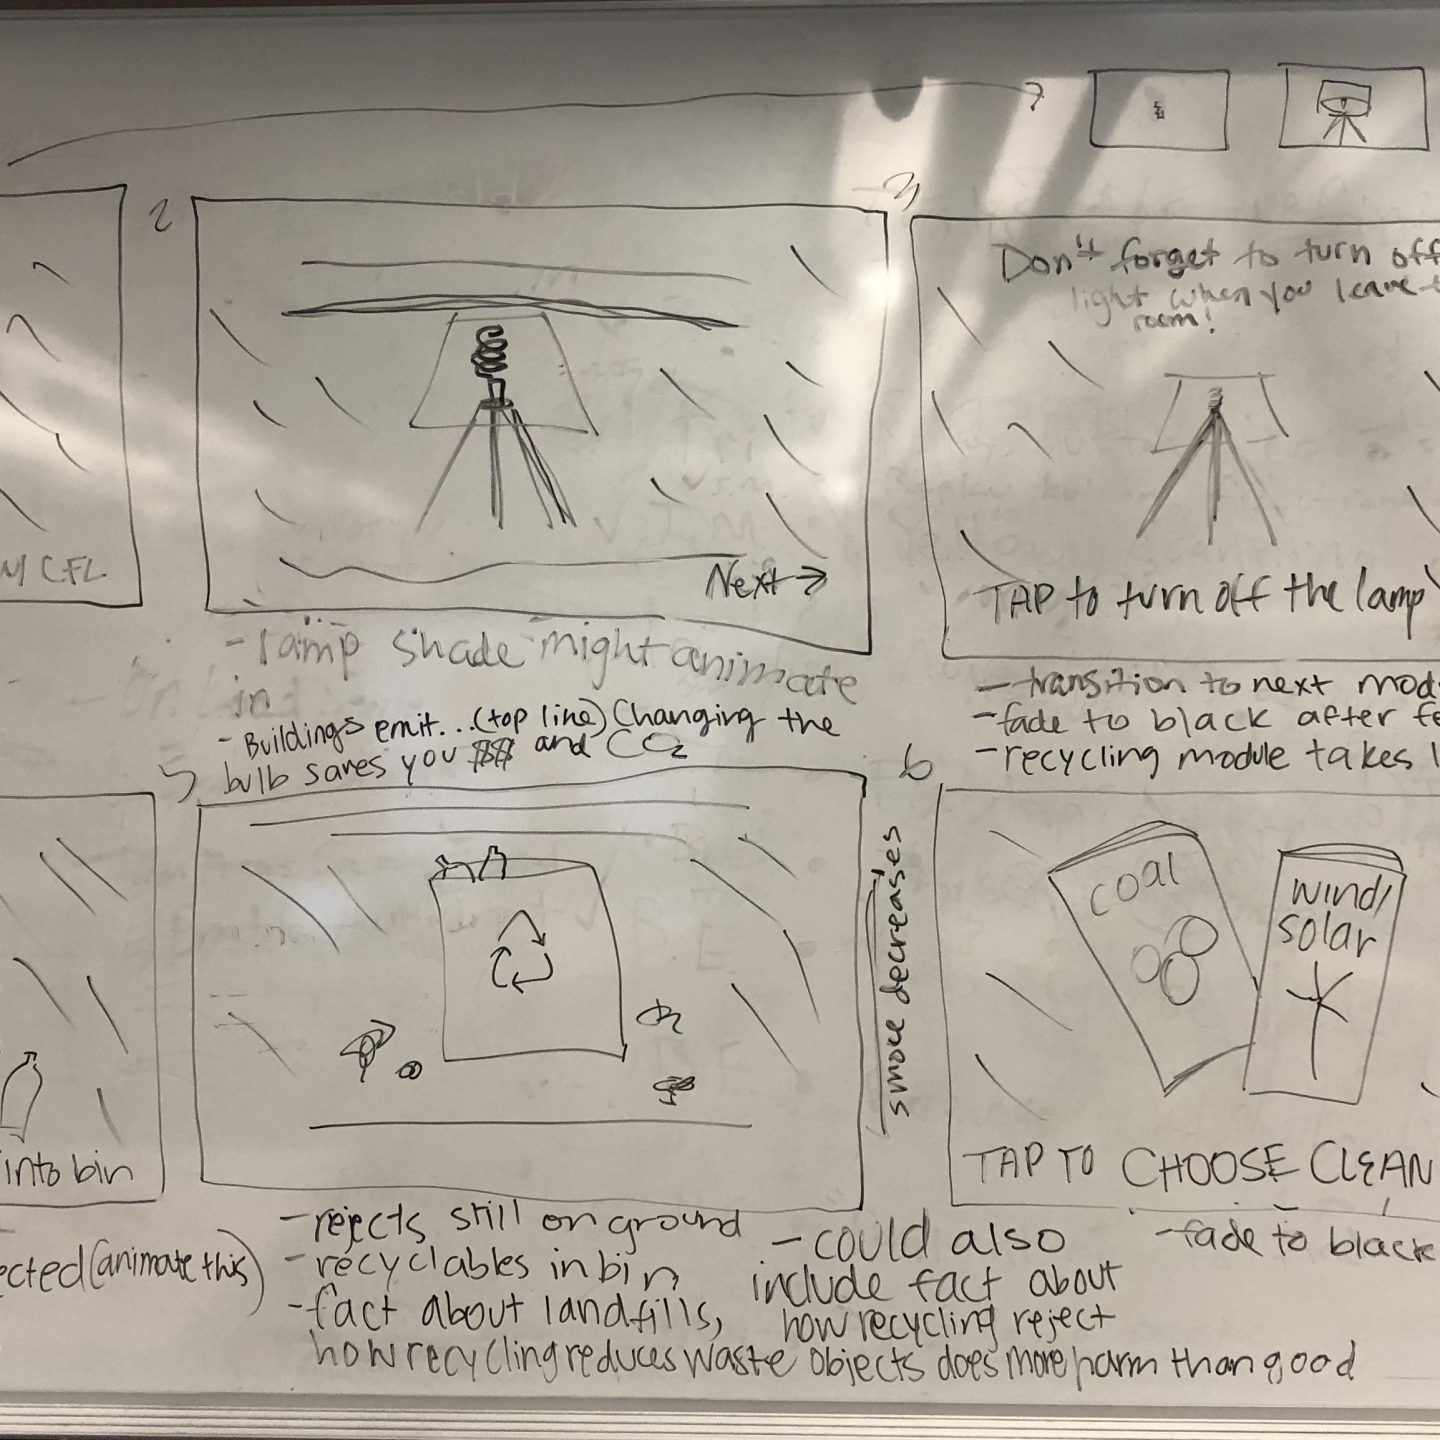 2
3
Don't forget to turn off
light when you leave t
room!
w/ CFL
Next →
TAP to turn off the lamp
- lamp shade might animate
in
- Buildings emit... (top line) Changing the
bulb saves you $$$ and CO2
- transition to next mod
- fade to black after fe
- recycling module takes
5
6
smoke decreases
coal
wind/
solar
into bin
TAP TO CHOOSE CLEAN
ected (animate this)
- rejects still on ground
- recyclables in bin
- fact about landfills,
how recycling reduces waste
- could also
include fact about
how recycling reject
objects does more harm than good
- fade to black